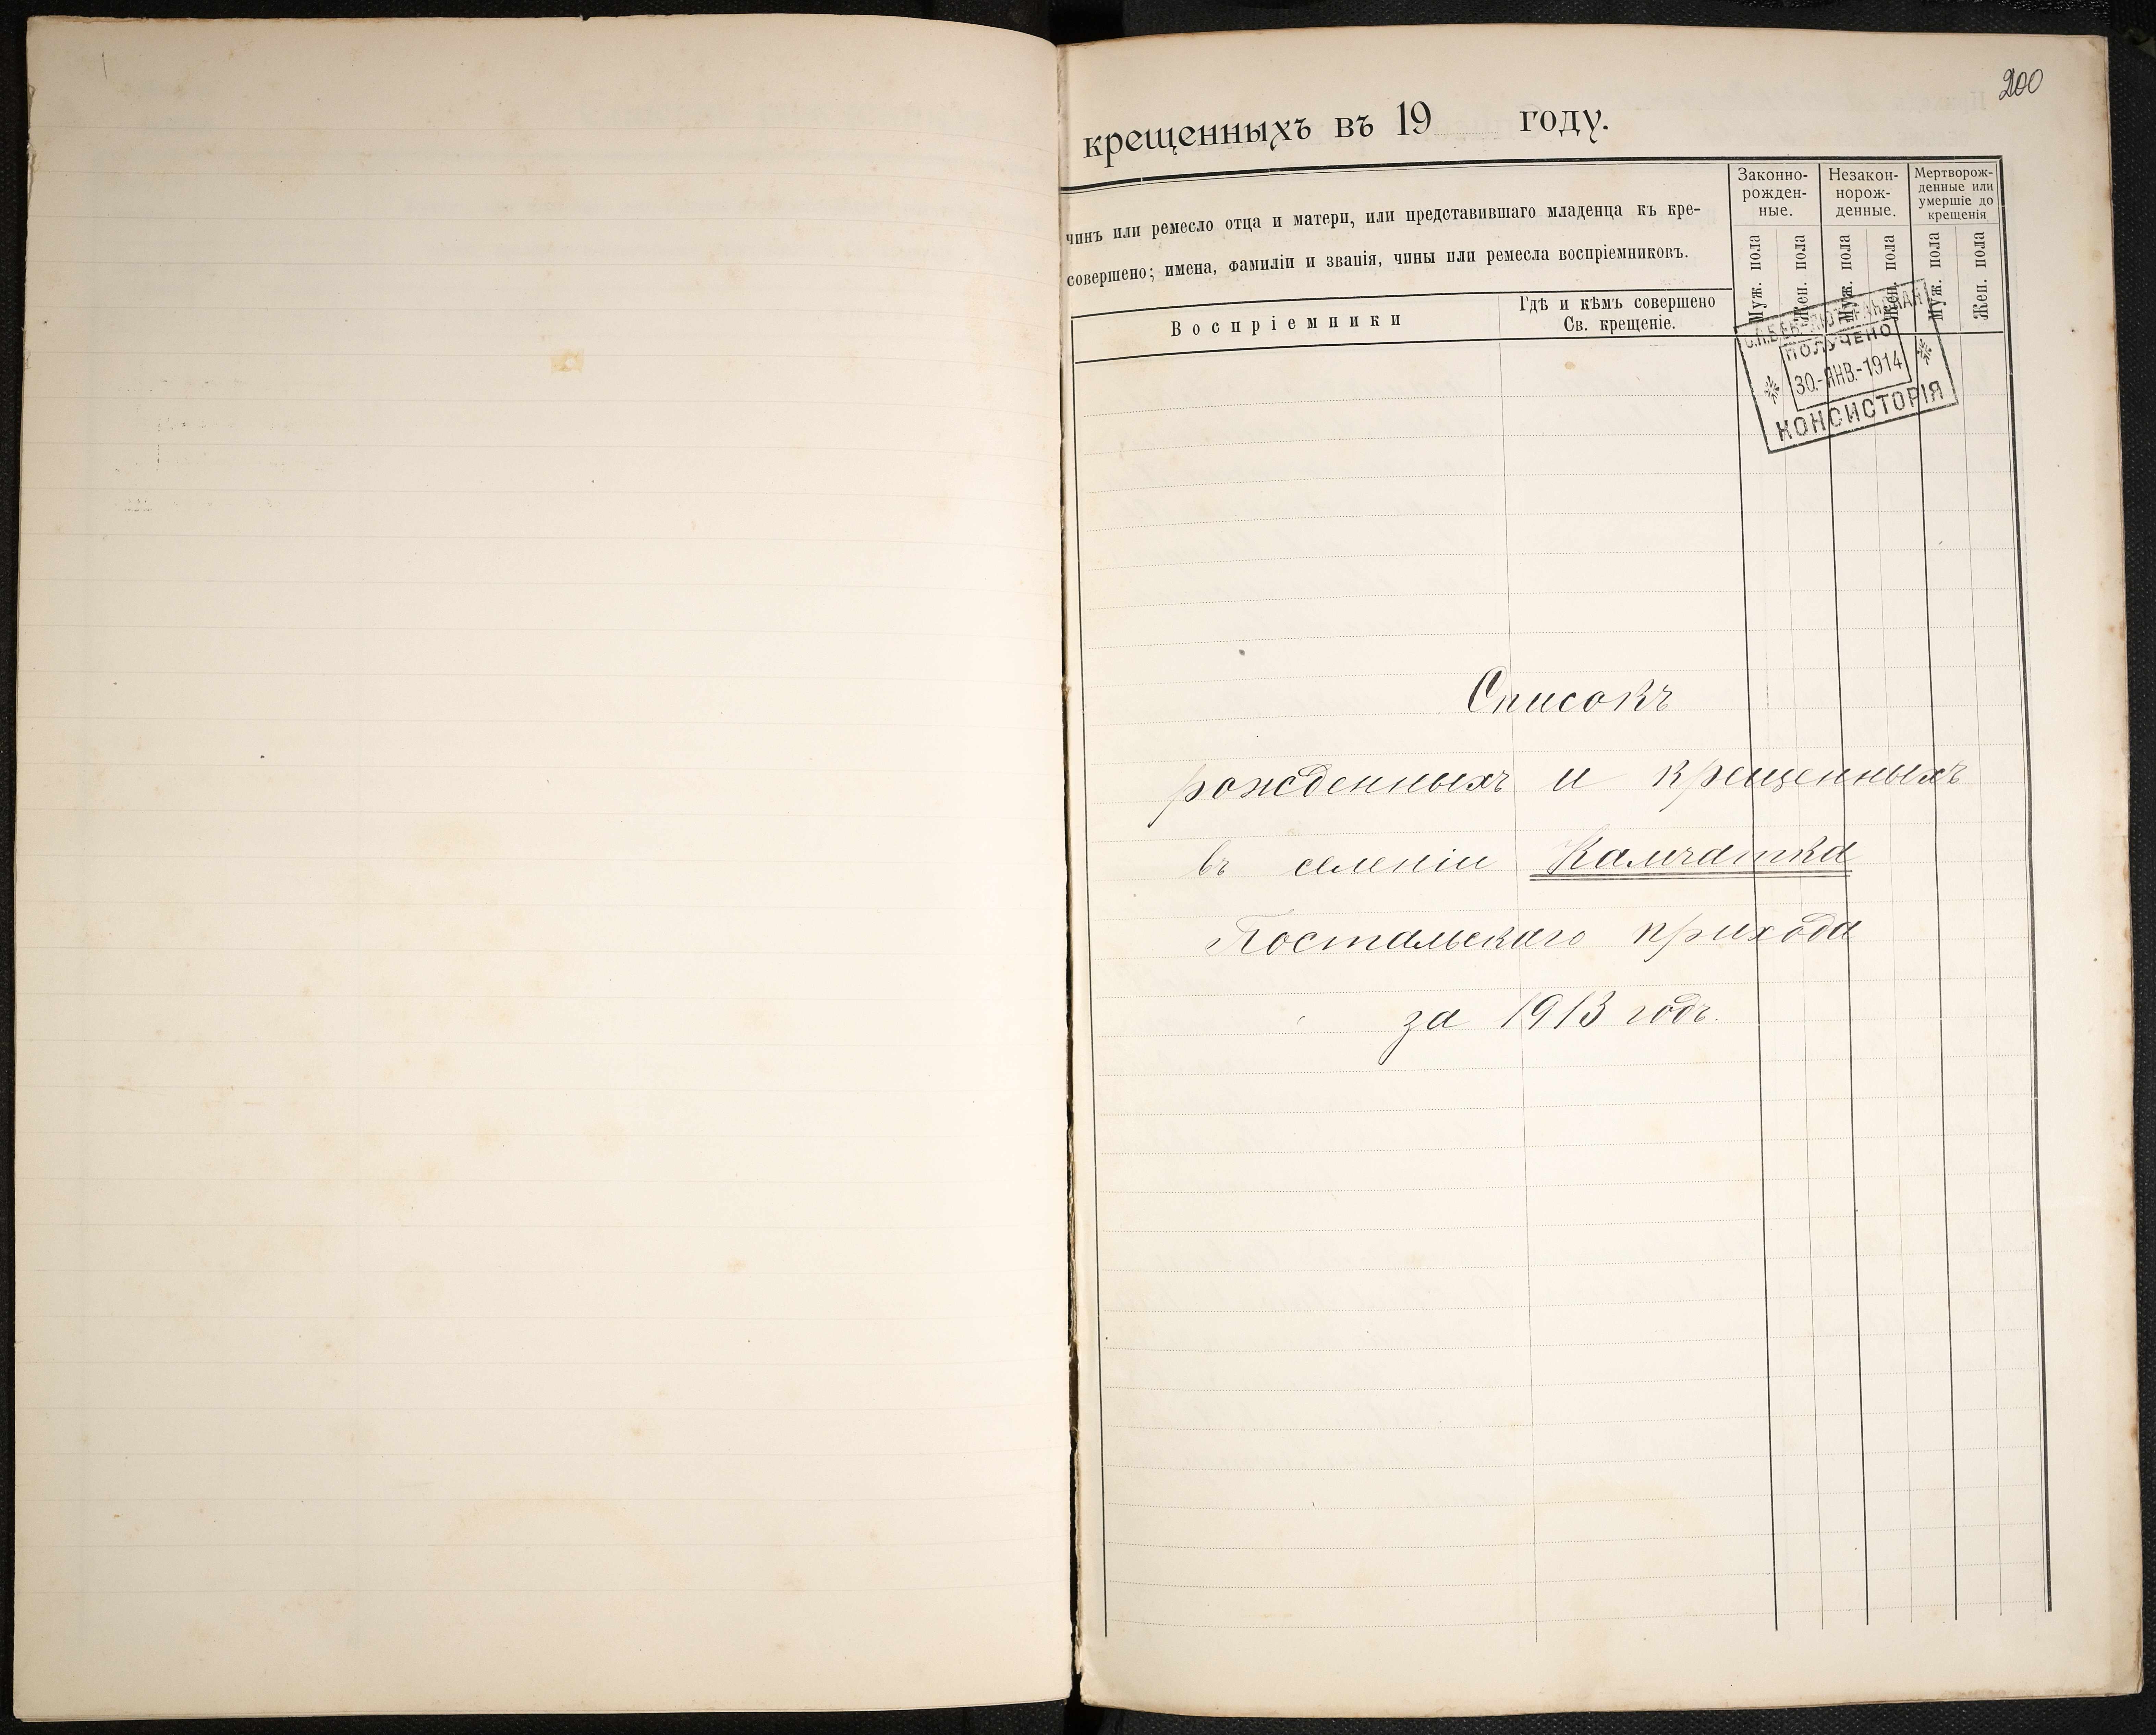 200
крещенныхъ въ 19 году.
чинъ или ремесло отца и матери, или представившаго младенца къ кре-
совершено; имена, фамиліи и званія, чины или ремесла воспріемниковъ.
Воспріемники
Гдѣ и кѣмъ совершено
Св. крещеніе.
Законно-
рожден-
ные.
Незакон-
норож-
денные.
Мертворож-
денные или
умершіе до
крещенія
Муж. пола
Жен. пола
Муж. пола
Жен. пола
Муж. пола
Жен. пола
ПОЛУЧЕНО
30.-ЯНВ.-1914
КОНСИСТОРІЯ
Списокъ
рожденныхъ и крещенныхъ
въ селеніи Камчатка
Постальскаго прихода
за 1913 годъ.